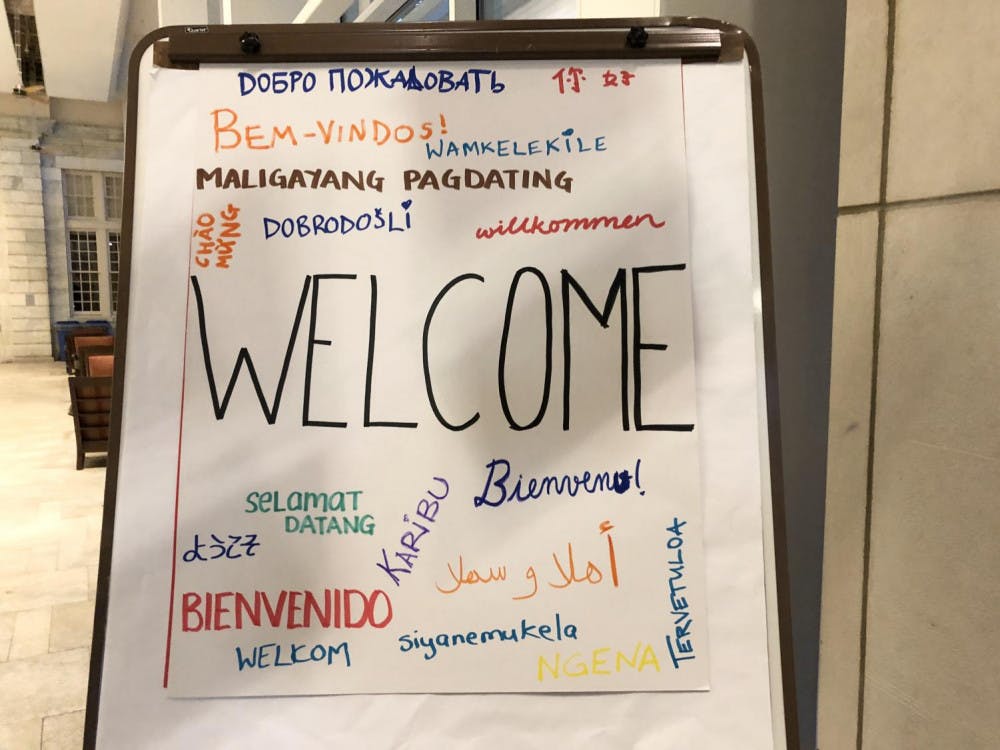 ДОБРО ПОЖАДОВАТЬ
你好
BEM-VINDOS!
WAMKELEKILE
MALIGAYANG PAGDATING
CHÀO
MỪNG
DOBRODOŠLI
willkommen
WELCOME
Bienvenu!
selamat
DATANG
KARIBU
ようこそ
أهلا و سهلا
TERVETULOA
BIENVENIDO
siyanemukela
WELKOM
NGENA